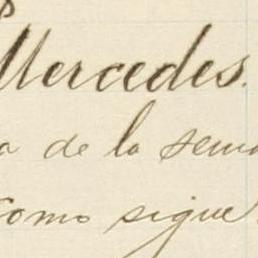 Mercedes.
a de la sema
como sigue